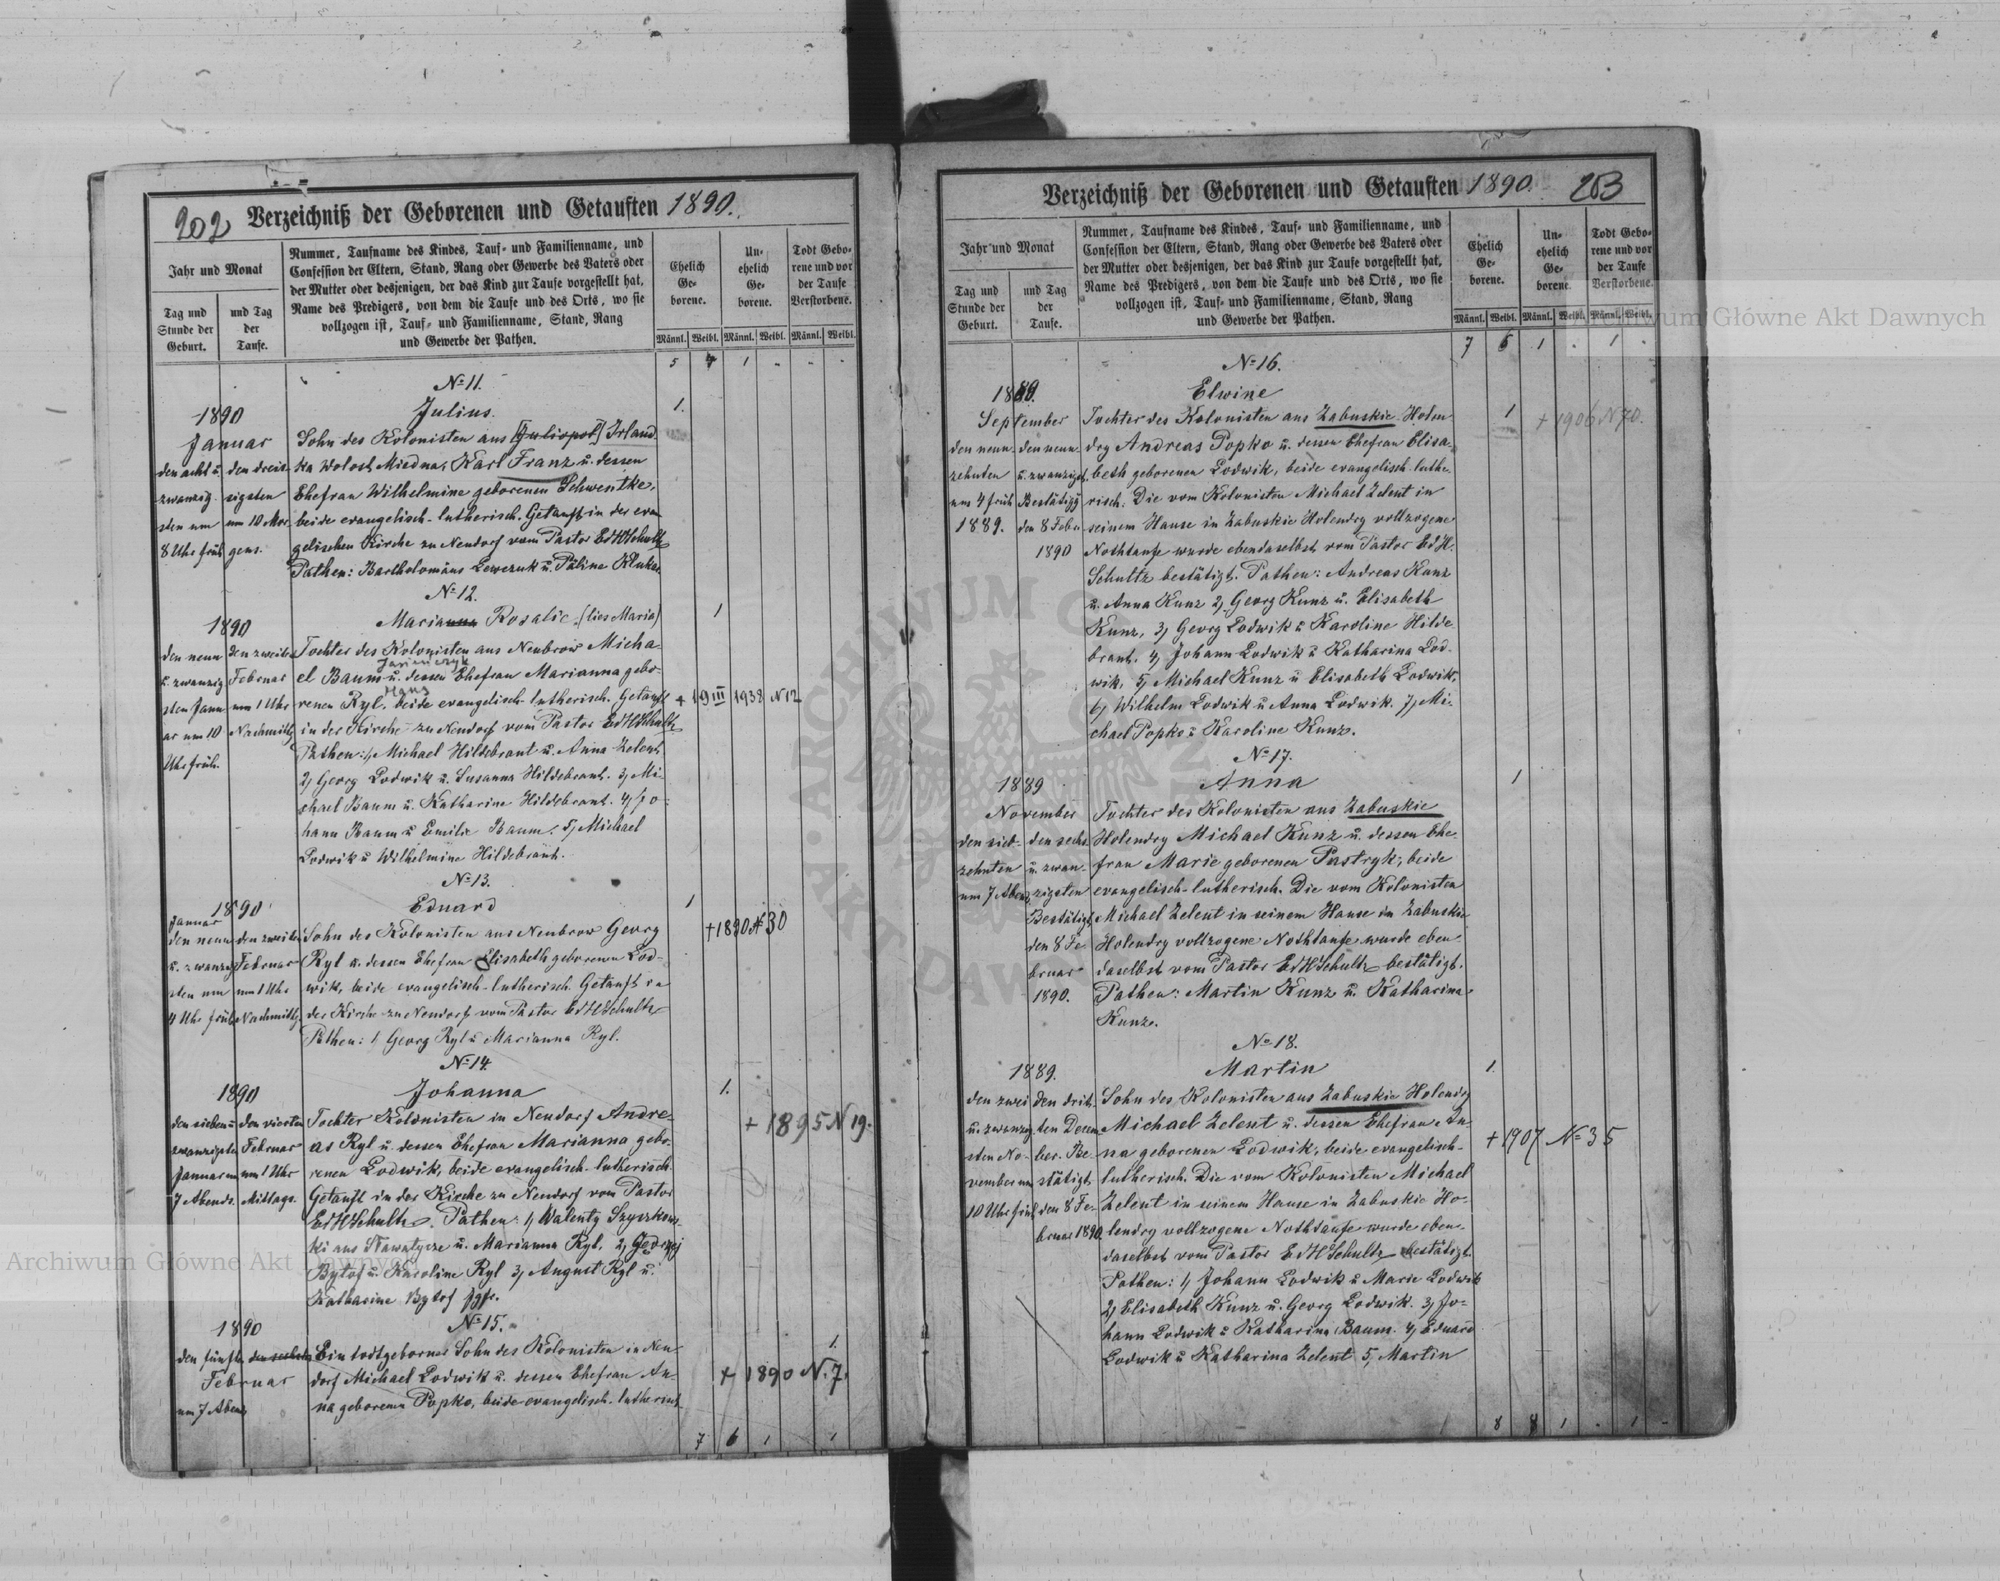 202 Verzeichniß der Geborenen und Getauften 1890.
Jahr und Monat
Tag und Stunde der Geburt.
und Tag der Taufe.
Nummer, Taufname des Kindes, Tauf- und Familienname, und
Confession der Eltern, Stand, Rang oder Gewerbe des Vaters oder
der Mutter oder desjenigen, der das Kind zur Taufe vorgestellt hat,
Name des Predigers, von dem die Taufe und des Orts, wo sie
vollzogen ist, Tauf- und Familienname, Stand, Rang
und Gewerbe der Pathen.
Ehelich Geborene.
Unehelich Geborene.
Todt Geborene und vor der Taufe Verstorbene.
Männl. Weibl. Männl. Weibl. Männl. Weibl.
5 4 1 " " "
№ 11.
1890 Julius. 1.
Januar
den acht u. zwanzigsten um 8 Uhr früh
den dreissigsten um 10 Morgens.
Sohn des Kolonisten aus [Juliopol] Irland
ka Wolost Miedna, Karl Franz u. dessen
Ehefrau Wilhelmine geborenen Schwentke,
beide evangelisch-lutherisch. Getauft in der evan
gelischen Kirche zu Neudorf vom Pastor EdHSchultz
Pathen: Bartholomäus Lewczuk u. Paline Klukas.
№ 12.
1890 Marianna Rosalie (lies Maria) 1
den neun u. zwanzigsten Januar um 10 Uhr früh.
den zweiten Februar um 1 Uhr Nachmittg
Tochter des Kolonisten aus Neubrow Micha
el Baum u. dessen Ehefrau Marianna gebo-
renen Ryl, beide evangelisch-lutherisch. Getauft
+ 19 III 1938 N 12
in der Kirche zu Neudorf vom Pastor EdHSchultz
Pathen: 1, Michael Hildebrant u. Anna Zelent,
2, Georg Lodwik u. Susanna Hildebrant. 3, Mi-
chael Baum u. Katharine Hildebrant. 4, Jo-
hann Baum u. Emilie Baum. 5, Michael
Lodwik u Wilhelmine Hildebrant.
№ 13.
1890 Eduard 1
Januar
den neun u. zwanzigsten um 4 Uhr früh
den zweiten Februar um 1 Uhr Nachmittg.
Sohn des Kolonisten aus Neubrow Georg
+1890 № 30
Ryl u. dessen Ehefrau Elisabeth geborenen Lod-
wik, beide evangelisch-lutherisch. Getauft in
der Kirche zu Neudorf vom Pastor EdHSchultz
Pathen: 1, Georg Ryl u Marianna Ryl.
№ 14.
1890 Johanna 1.
den sieben u zwanzigsten Januar um 7 Abends.
den vierten Februar um 1 Uhr Mittags.
Tochter Kolonisten in Neudorf Andre
+ 1895 N 19.
as Ryl u. dessen Ehefrau Marianna gebo-
renen Lodwik, beide evangelisch-lutherisch.
Getauft in der Kirche zu Neudorf vom Pastor
EdHSchultz. Pathen: 1, Walenty Szyszkows-
ki aus Sławatycze u. Marianna Ryl, 2, Gedrzej
Bytof u. Karoline Ryl 3, August Ryl u.
Katharine Bytof Jgfr.
№ 15.
1890
den fünften Februar um 7 Abend
Ein todtgeborner Sohn des Kolonisten in Neu- 1.
dorf Michael Lodwik u. dessen Ehefrau An-
+ 1890 N. 7.
na geborenen Popko, beide evangelisch-lutherisch
7 6 1 1
Verzeichniß der Geborenen und Getauften 1890. 203
Jahr und Monat
Tag und Stunde der Geburt.
und Tag der Taufe.
Nummer, Taufname des Kindes, Tauf- und Familienname, und
Confession der Eltern, Stand, Rang oder Gewerbe des Vaters oder
der Mutter oder desjenigen, der das Kind zur Taufe vorgestellt hat,
Name des Predigers, von dem die Taufe und des Orts, wo sie
vollzogen ist, Tauf- und Familienname, Stand, Rang
und Gewerbe der Pathen.
Ehelich Geborene.
Unehelich Geborene.
Todt Geborene und vor der Taufe Verstorbene.
Männl. Weibl. Männl. Weibl. Männl. Weibl.
7 6 1 . 1 .
№ 16.
Elwine
September
den neunzehnten um 4 früh 1889.
den neun u. zwanzigst. Bestätigt den 8 Febr 1890
Tochter des Kolonisten aus Zabuskie Holen- 1
+ 1906 N 70.
dry Andreas Popko u. dessen Ehefrau Elisa-
beth geborenen Lodwik, beide evangelisch-luthe-
risch. Die vom Kolonisten Michael Zelent in
seinem Hause in Zabuskie Holendry vollzogene
Nothtaufe wurde ebendaselbst vom Pastor EdH.
Schultz bestätigt. Pathen: Andreas Kunz
u. Anna Kunz 2, Georg Kunz u. Elisabeth
Kunz, 3, Georg Lodwik u Karoline Hilde
brant. 4, Johann Lodwik u Katharina Lod-
wik, 5, Michael Kunz u Elisabeth Lodwik,
6, Wilhelm Lodwik u Anna Lodwik. 7, Mi-
chael Popko u Karoline Kunz.
№ 17.
1889 Anna 1
November
den siebzehnten um 7 Abend
den sechs u. zwanzigsten Bestätigt den 8 Februar 1890.
Tochter des Kolonisten aus Zabuskie
Holendry Michael Kunz u. dessen Ehe-
frau Marie geborenen Pastryk, beide
evangelisch-lutherisch. Die vom Kolonisten
Michael Zelent in seinem Hause in Zabuskie
Holendry vollzogene Nothtaufe wurde eben-
daselbst vom Pastor EdHSchultz bestätigt.
Pathen: Martin Kunz u. Katharina
Kunz.
№ 18.
1889. Martin 1.
den zwei u. zwanzigsten November um 10 Uhr früh
den dritten Decem ber. Bestätigt den 8 Februar 1890.
Sohn des Kolonisten aus Zabuskie Holendry
Michael Zelent u. dessen Ehefrau An-
+ 1907 № 35
na geborenen Lodwik, beide evangelisch-
lutherisch. Die vom Kolonisten Michael
Zelent in seinem Hause in Zabuskie Ho-
lendry vollzogene Nothtaufe wurde eben-
daselbst vom Pastor EdHSchultz bestätigt.
Pathen: 1, Johann Lodwik u Marie Lodwik
2, Elisabeth Kunz u. Georg Lodwik. 3, Jo-
hann Lodwik u Katharina Baum. 4, Eduard
Lodwik u Katharina Zelent 5, Martin
8 8 1 . 1 -
Archiwum Główne Akt Dawnych
Archiwum Główne Akt Dawnych